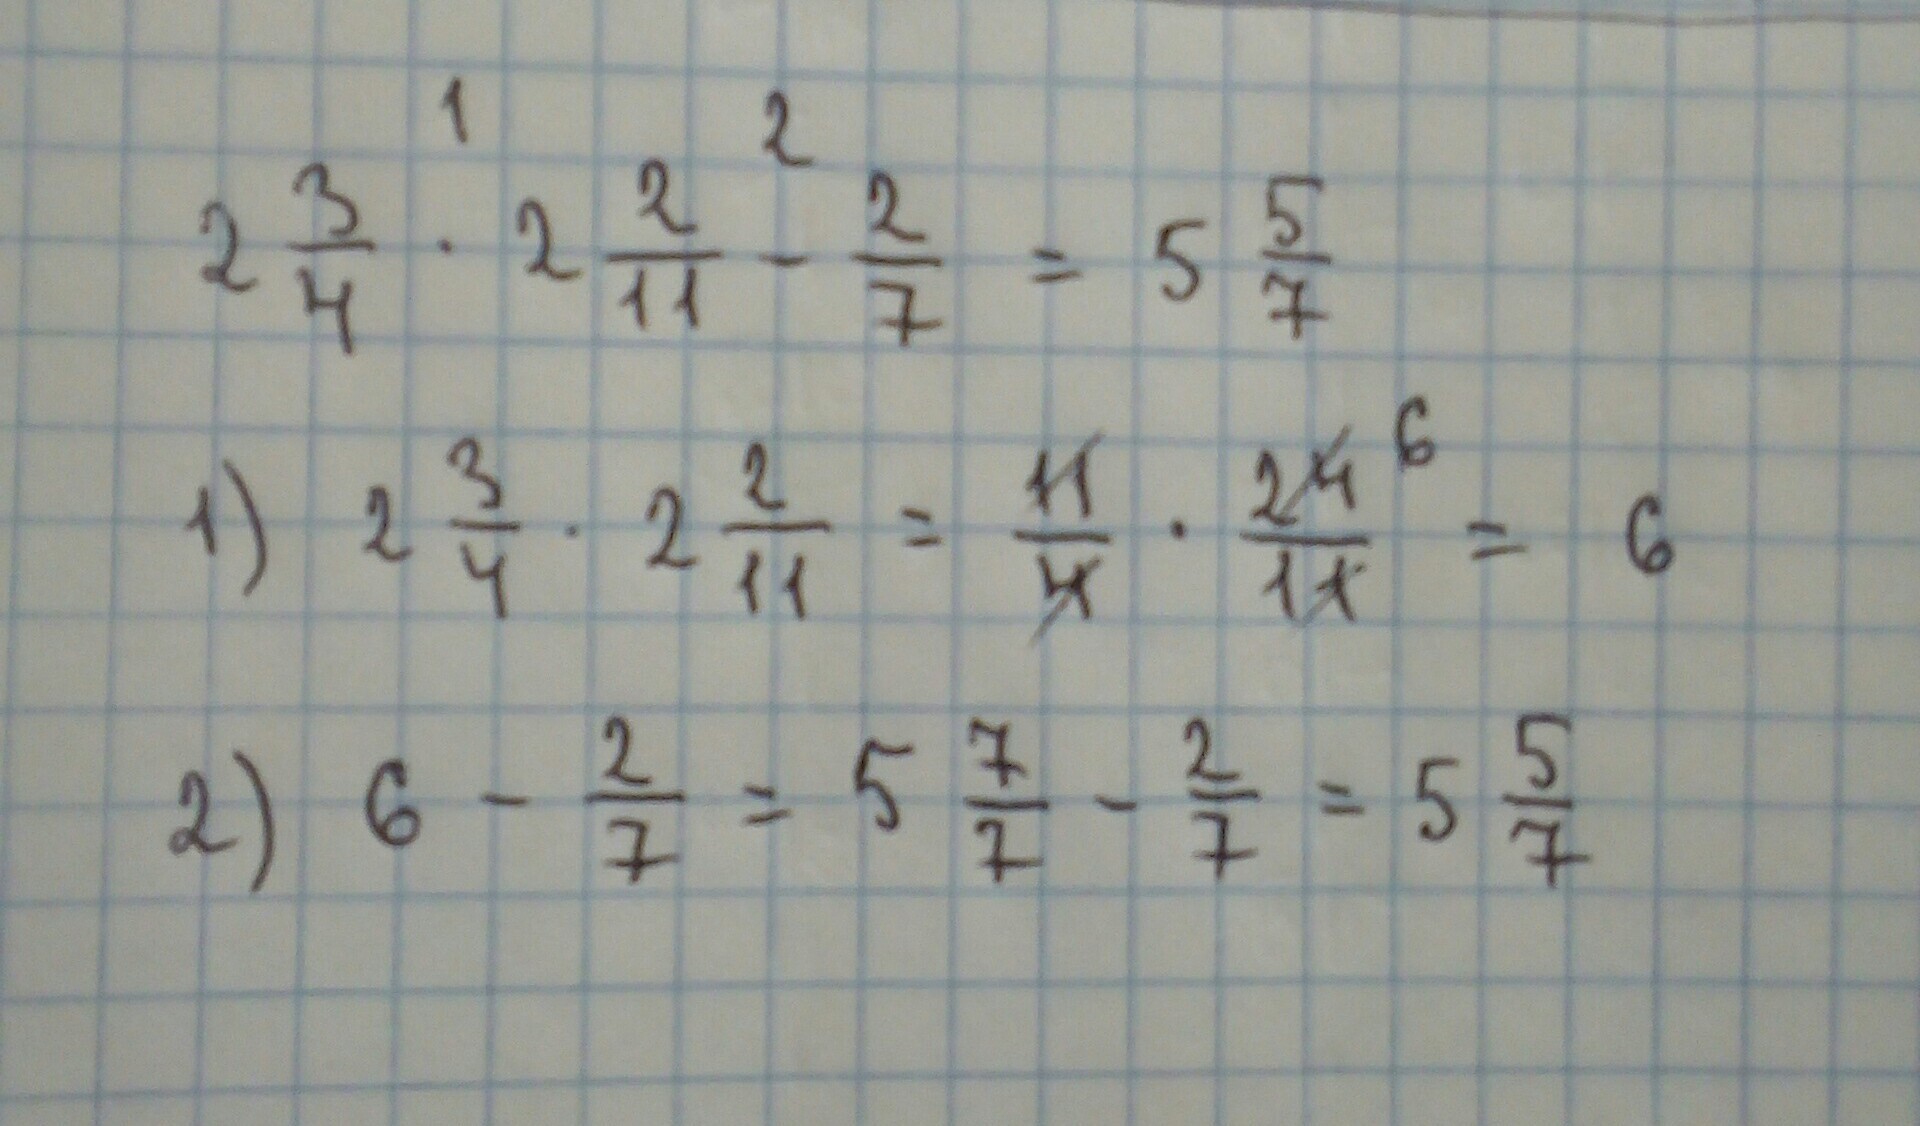 2 3/4 ·¹ 2 2/11 -² 2/7 = 5 5/7
1) 2 3/4 · 2 2/11 = 11/4 · 24/11 6 = 6
2) 6 - 2/7 = 5 7/7 - 2/7 = 5 5/7